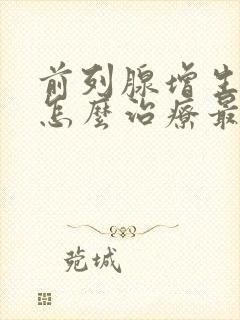 前列腺增生
怎麼治療最
菀城